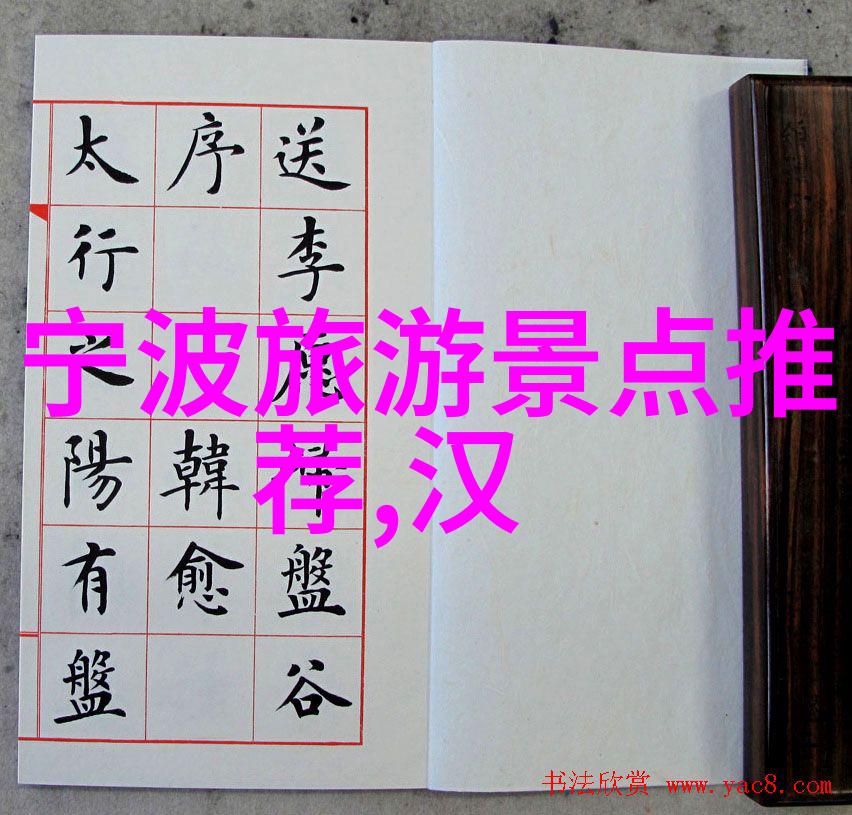 送李愿歸盤谷
序韓愈
太行之陽有盤
宁波旅游景点推
荐,汉
书法欣赏 www.yac8.com